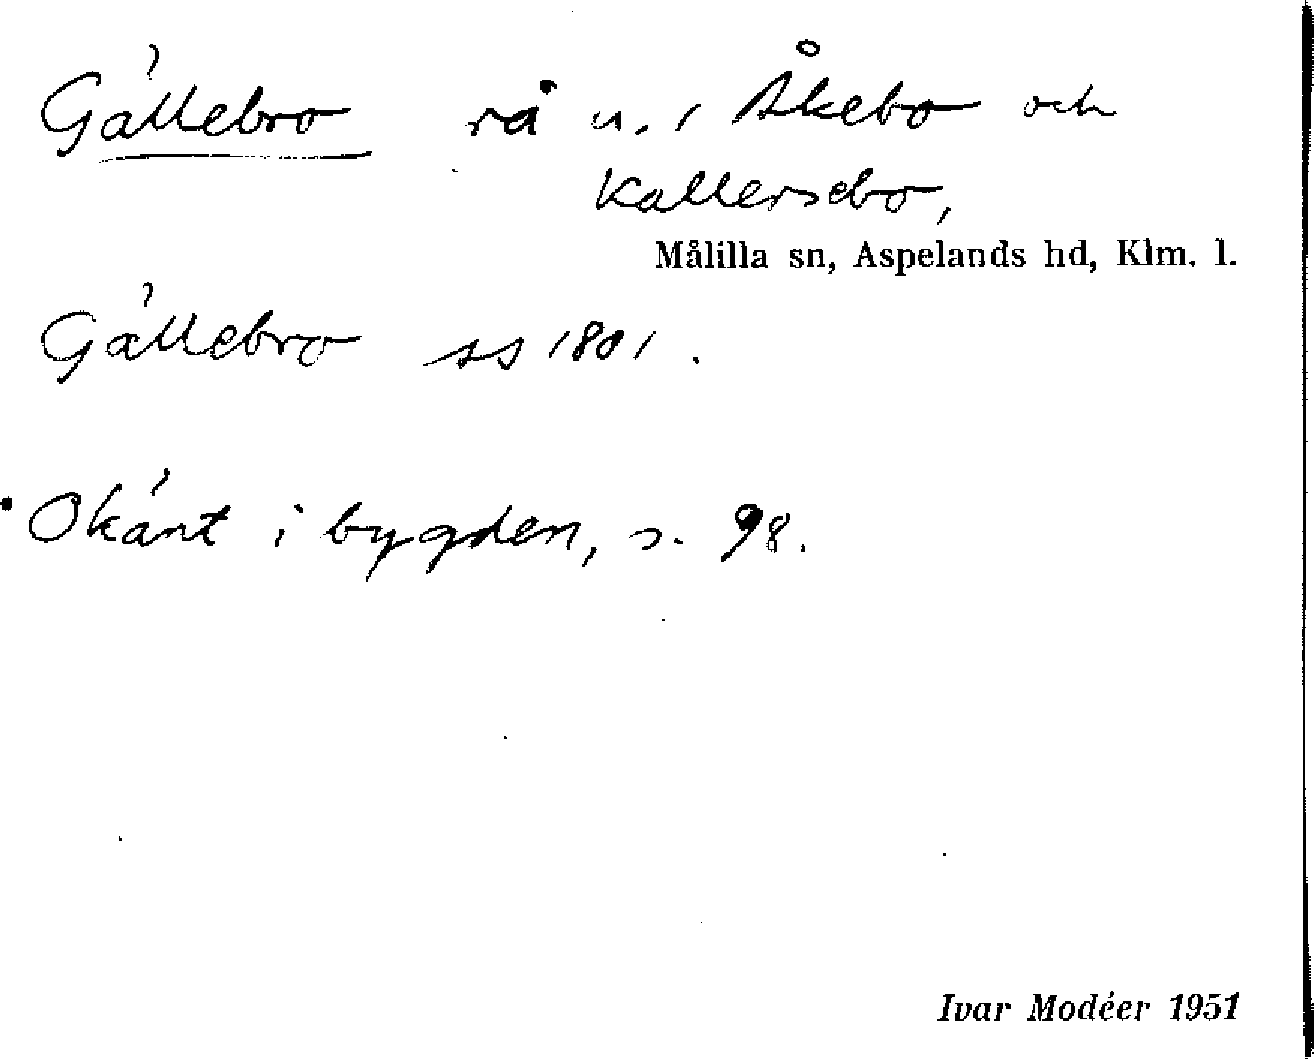 Gällebro rå u. 1 Åkebo och
Kallersebo,
Målilla sn, Aspelands hd, Klm. l.
Gällebro ss 1801.
Okänt i bygden, s. 98.
Ivar Modéer 1951